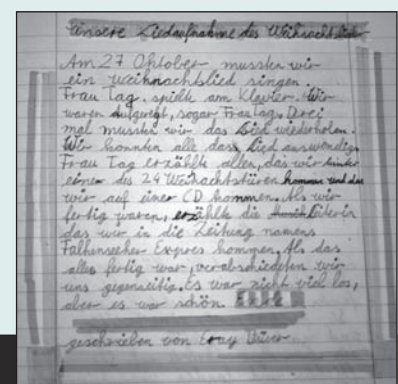 Unsere Liedaufnahme des Weihnachtslied
Am 27 Oktober mussten wir
ein Weihnachtslied singen.
Frau Tag. spielte am Klavier. Wir
waren aufgeregt, sogar Frau Tag. Drei
mal mussten wir das Lied wiederholen.
Wir konnten alle dass Lied auswendig.
Frau Tag erzählte allen, das wir hinter
einer des 24 Weihnachtstüren kommen und das
wir auf einer CD kommen. Als wir
fertig waren, erzählte die Leiterin
das wir in die Zeitung namens
Falkenseeher Expres kommen. Als das
alles fertig war, verabschiedeten wir
uns gegenseitig. Es war nicht viel los,
aber es war schön. Ende
geschrieben von Eray